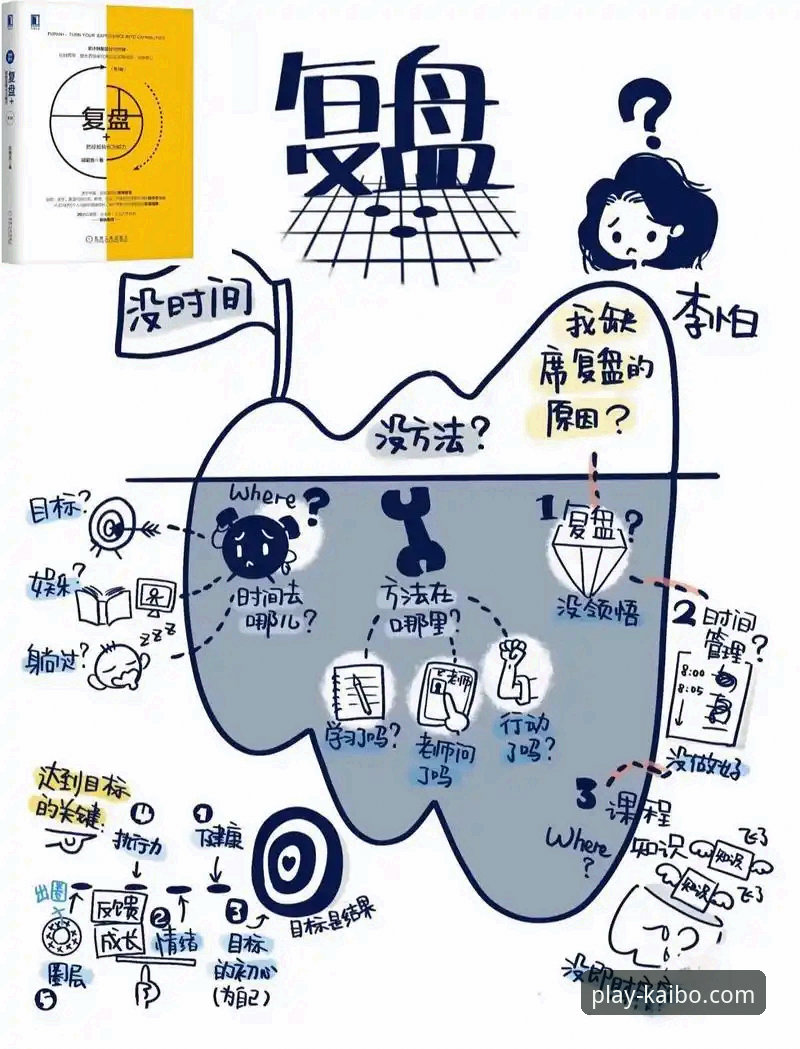 复盘+
把经验转化为能力
复盘
?
李怡
没时间
我缺
席复盘的
原因?
没方法?
目标?
娱乐?
躺过?
zzz
Where?
时间去
哪儿?
方法在
哪里?
学习了吗?
老师
老师问
了吗
行动
了吗?
1
复盘?
没领悟
2 时间
管理?
8:00
8:05
没做好
3 课程
Where
?
知识
知识
飞了
知识
飞了
?
达到目标
的关键:
4
执行力
1
健康
出圈
反馈
成长
2
情绪
3
目标
的初心
(为自己)
目标是结果
圈层
5
play-kaibo.com